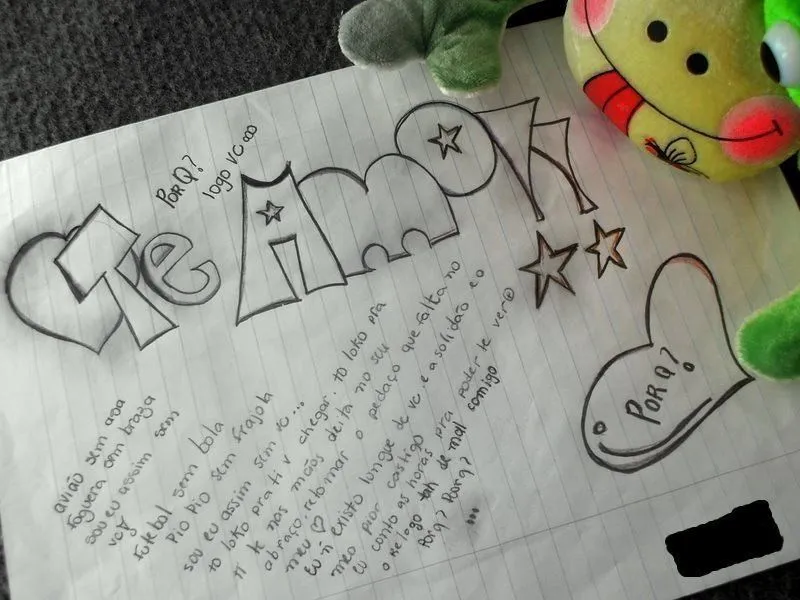 Te Amo
PORQ?
logo vc∞
PORQ?
avião sem asa
foguera sem braza
sou eu assim sem
vc
Futebol sem bola
Pio Pio sem frajola
sou eu assim sem vc...
to loko pra ti v chegar. to loko pra
ti te nas mãos deita no seu
abraço. retomar o pedaço que falta no
meu ♡
Eu ñ existo longue de vc. e a solidão e o
meo pior castigo
eu conto as horas pra poder te ver
o relogo tah de mal comigo
Porq? Porq?
...